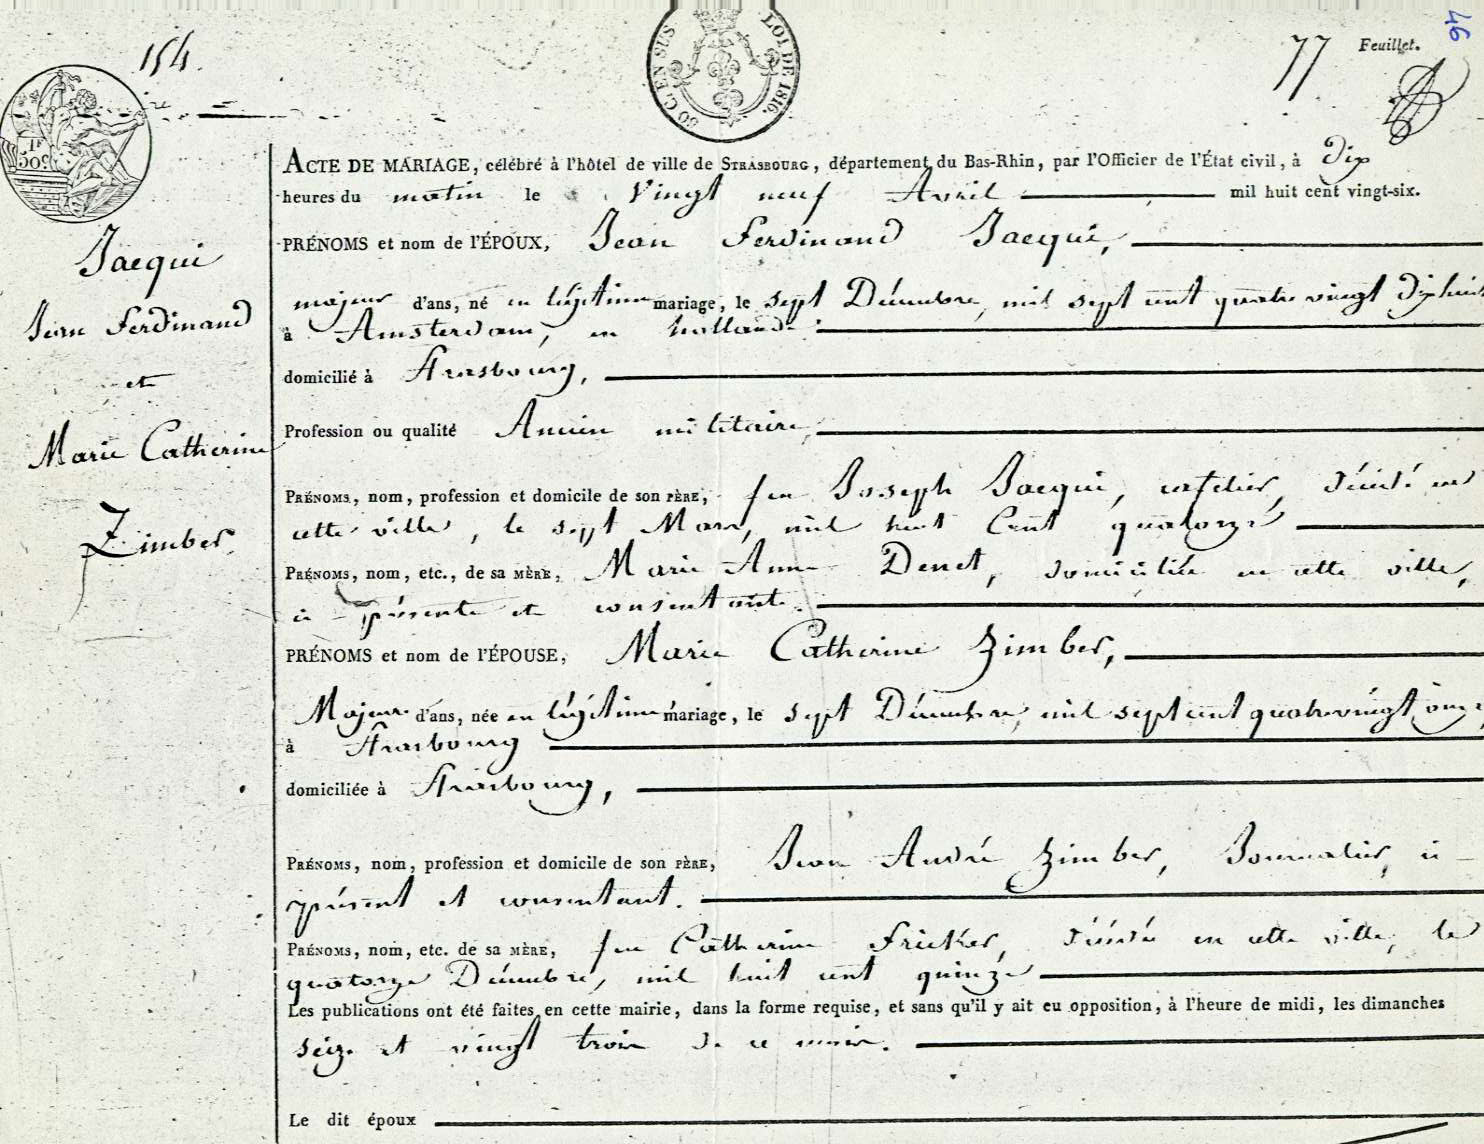 154.
77 Feuillet.
97
50 C. EN SUS LOI DE 1816.
ACTE DE MARIAGE, célébré à l'hôtel de ville de STRASBOURG, département du Bas-Rhin, par l'Officier de l'État civil, à Dix
heures du matin le Vingt neuf Avril mil huit cent vingt-six.
Jacqui
Jean Ferdinand
et
Marie Catherine
Zimber.
PRÉNOMS et nom de l'ÉPOUX, Jean Ferdinand Jacqui,
majeur d'ans, né en légitime mariage, le sept Décembre, mil sept cent quatre vingt dix huit
à Amsterdam, en hollande.
domicilié à Strasbourg,
Profession ou qualité Ancien militaire,
PRÉNOMS, nom, profession et domicile de son PÈRE, feu Joseph Jacqui, cafetier, décédé en
cette ville, le sept Mars, mil huit Cent quatorze
PRÉNOMS, nom, etc., de sa MÈRE, Marie Anne Denet, domiciliée en cette ville,
ci-présente et consentante.
PRÉNOMS et nom de l'ÉPOUSE, Marie Catherine Zimber,
Majeure d'ans, née en légitime mariage, le sept Décembre, mil sept cent quatre vingt onze,
à Strasbourg
domiciliée à Strasbourg,
PRÉNOMS, nom, profession et domicile de son PÈRE, Jean André Zimber, Journalier, ci-
présent et consentant.
PRÉNOMS, nom, etc. de sa MÈRE, feue Catherine Fricker, décédée en cette ville, le
quatorze Décembre, mil huit cent quinze
Les publications ont été faites en cette mairie, dans la forme requise, et sans qu'il y ait eu opposition, à l'heure de midi, les dimanches
seize et vingt trois de ce mois.
Le dit époux